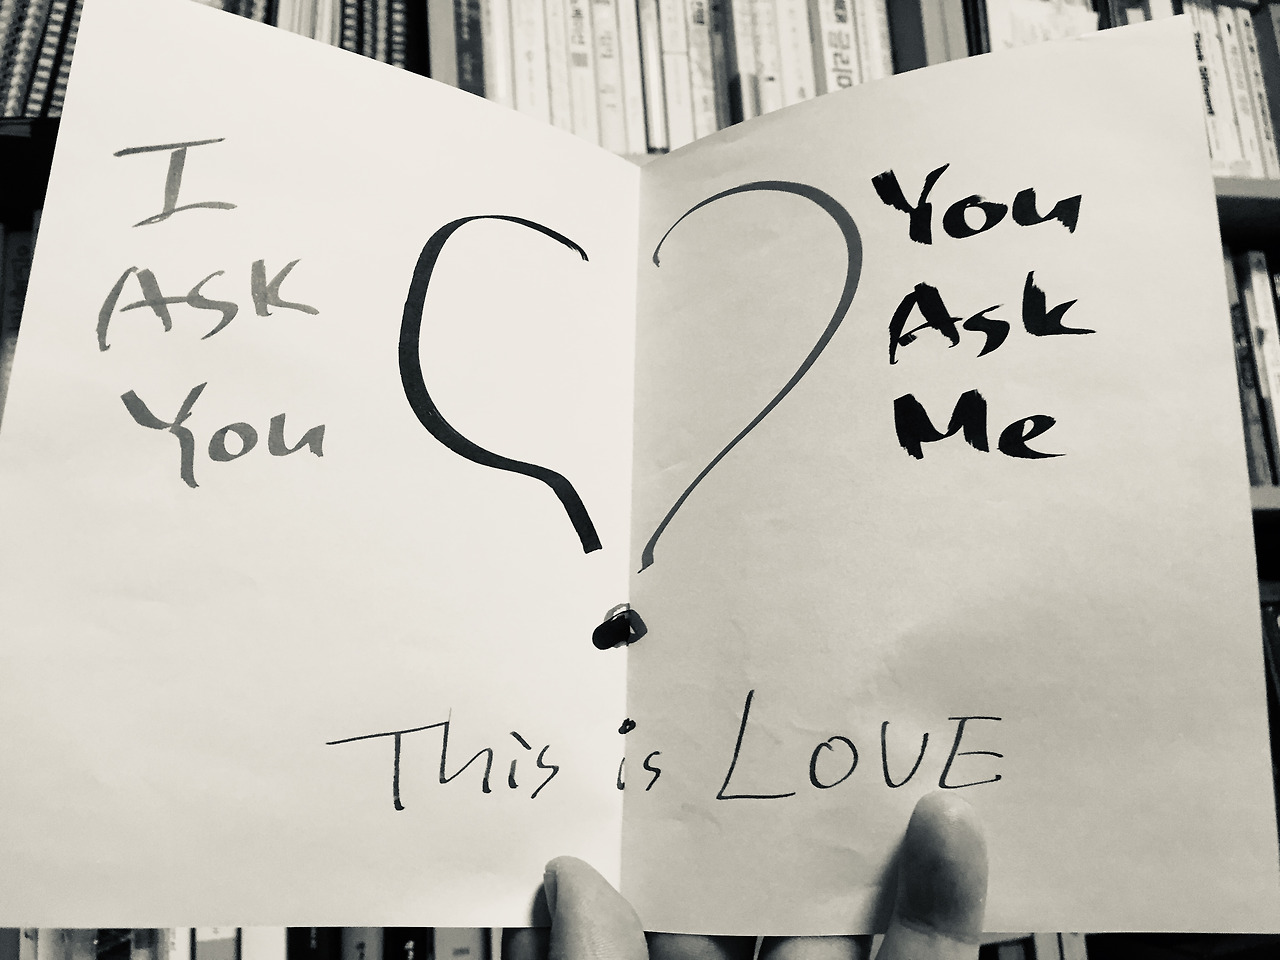 I
Ask
You
You
Ask
Me
This is LOVE